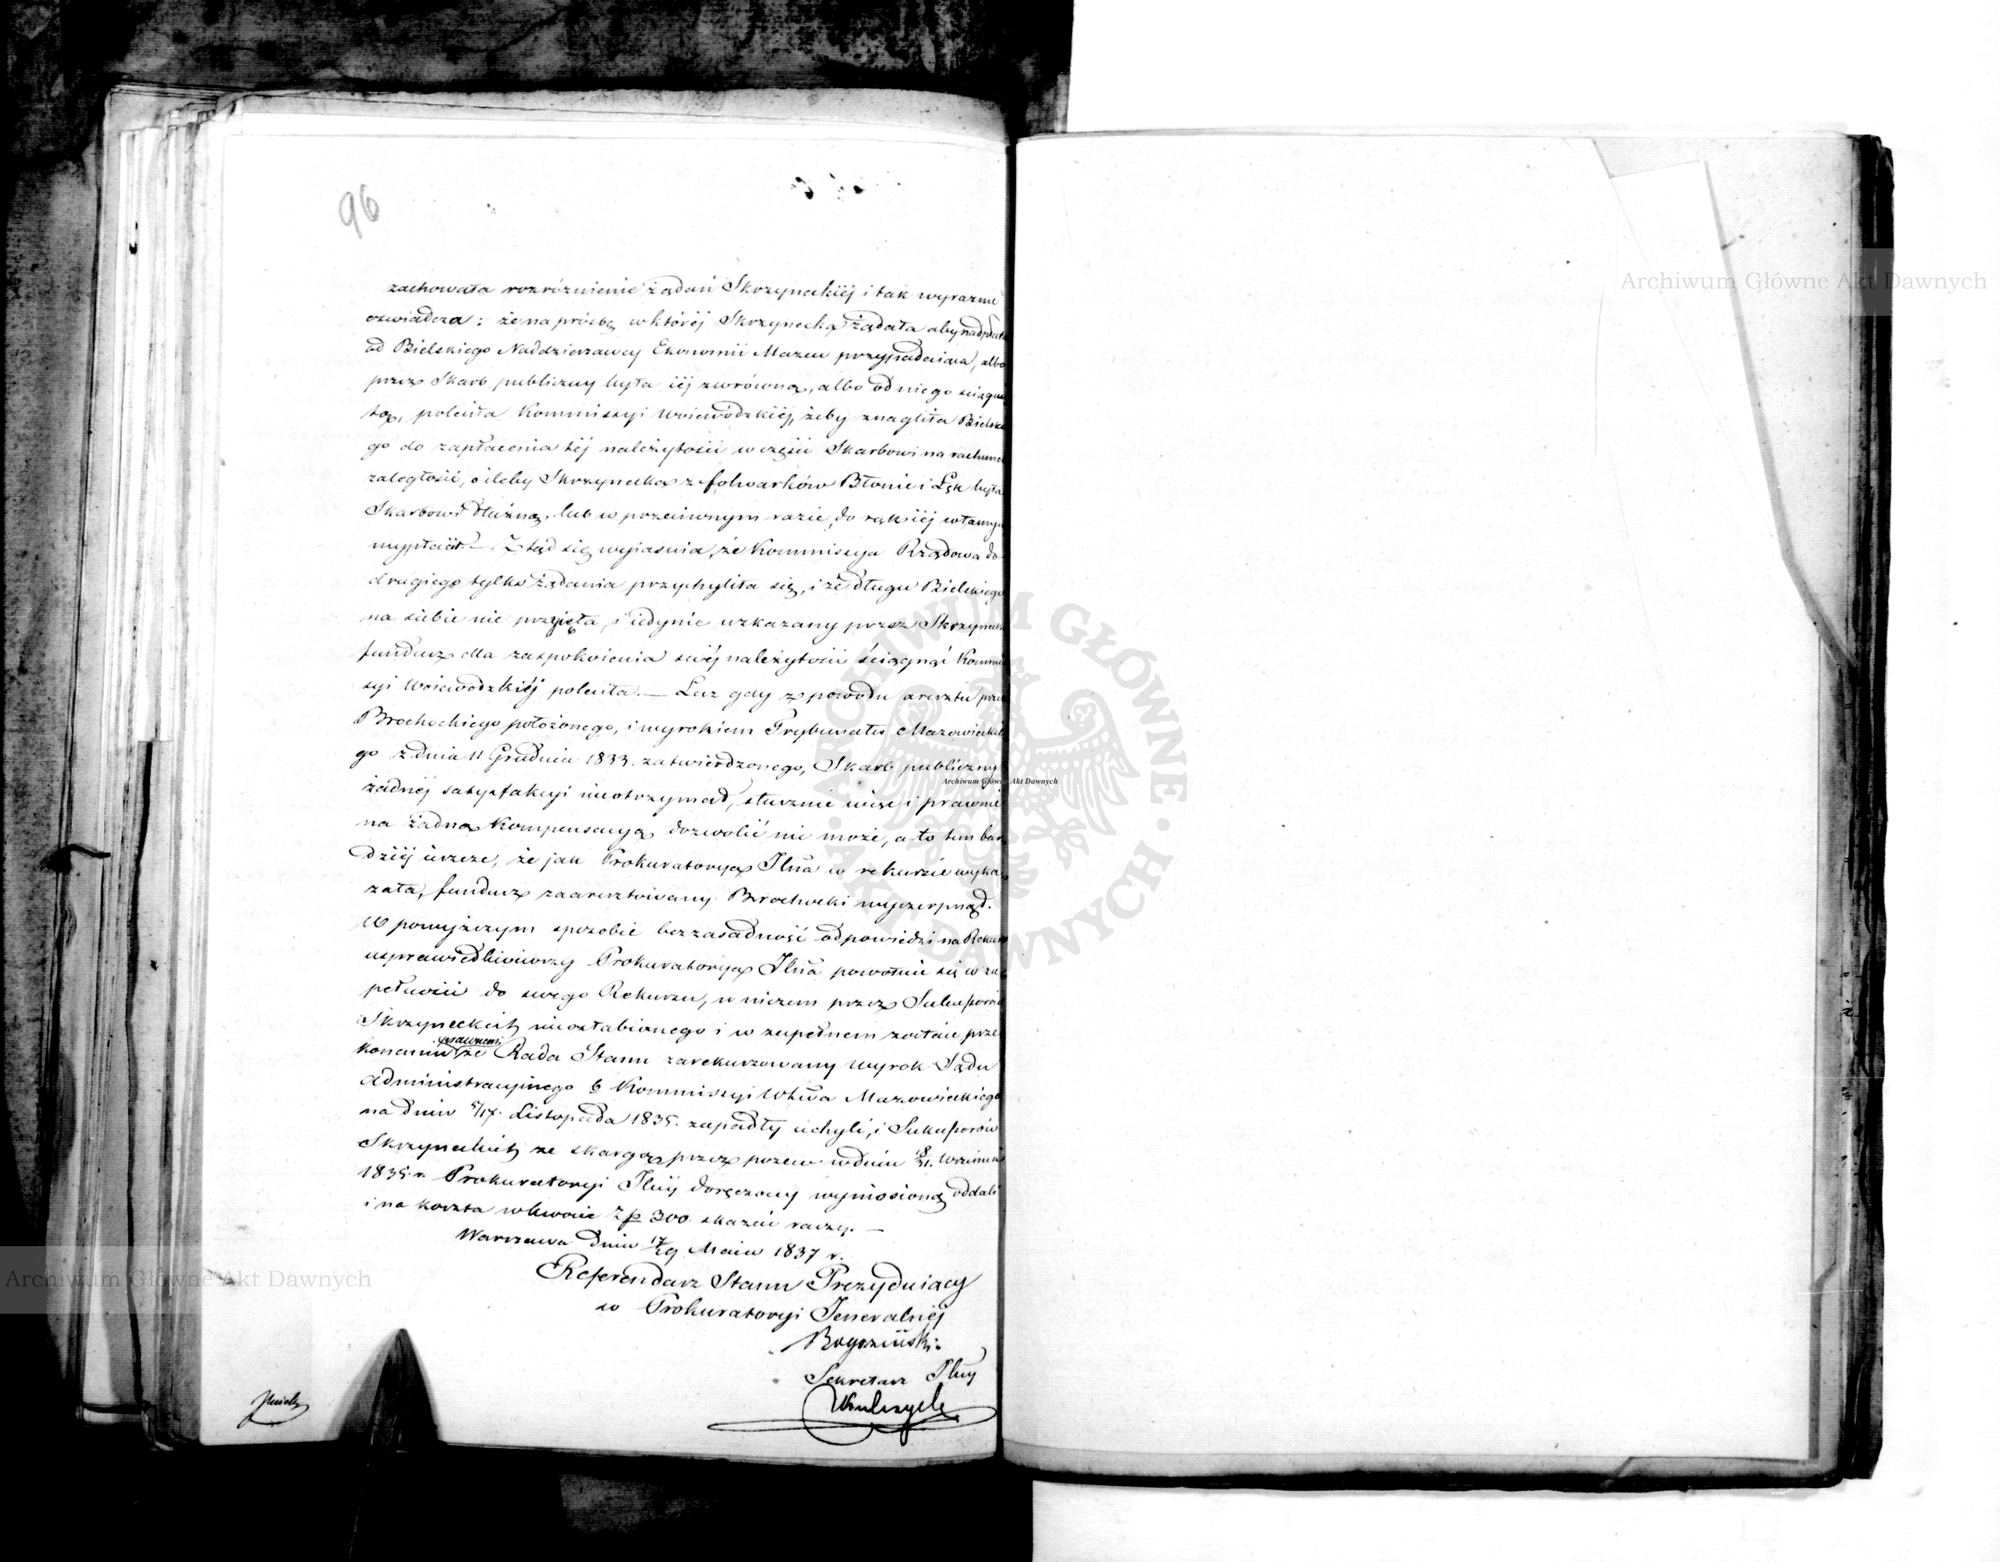 96
zachowała rozróżnienie żądań Skrzyneckiéj i tak wyraźnie
oświadcza: że na prośbę w któréj Skrzynecka żądała aby
od Bielskiego Naddzierzawcy Ekonomii Mazew przypadaiąca, albo
przez Skarb publiczny była iéj zwróconą, albo od niego ściągnię
tą, poleciła Kommissyi Woiewódzkiéj, żeby znagliła Bielskie
go do zapłacenia téj należytości w części Skarbowi na rachunek
zaległości, o ileby Skrzynecka z folwarków Błonie i Łęk była
Skarbowi dłużną, lub w przeciwnym razie, do rąk iéj własnych
wypłacił. — Ztąd się wyiaśnia, że Kommissya Rządowa do
drugiego tylko żądania przychyliła się, i że długu Bielskiego
na siebie nie przyięła, i iedynie wskazany przez Skrzynecką
fundusz dla zaspokoienia swéj należytości ściągnąć Kommis
syi Woiewodzkiéj poleciła. — Lecz gdy z powodu aresztu przez
Brochockiego położonego, i wyrokiem Trybunału Mazowieckie
go z dnia 11 Grudnia 1833. zatwierdzonego, Skarb publiczny
żadnéj satysfakcyi nieotrzymał, słusznie więc i prawnie
na żadną kompensacyą dozwolić nie może, a to tem bar
dziéj ieszcze, że jak Prokuratorya Jlna w rekursie wyka
zała, fundusz zaaresztowany Brochocki wyczerpnął.
W powyższym sposobie bezzasadność odpowiedzi na Rekurs
usprawiedliwiwszy Prokuratorya Jlna powołuie się w zu
pełności do swego Rekursu, w niczem przez Sukcessorów
Skrzyneckich nieosłabionego i w zupełnem zostaie prze
konaniu że Rada Stanu zarekursowany wyrok Sądu
administracyjnego b. Kommissyi Wtwa Mazowieckiego
na dniu 5/17. Listopada 1835. zapadły uchyli, i Sukcessorów
Skrzyneckich ze skargą przez pozew w dniu Września
1835 r. Prokuratoryi Jlnéj doręczony wyniesioną oddali
i na koszta w kwocie Zp 300 skazać raczy. —
Warszawa dnia 17/29 Maia 1837 r.
Referendarz Stanu Prezyduiący
w Prokuratoryi Jeneralnéj
Sekretarz Jlny
Archiwum Główne Akt Dawnych
Archiwum Główne Akt Dawnych
Archiwum Główne Akt Dawnych
ARCHIWUM GŁÓWNE · AKT DAWNYCH ·